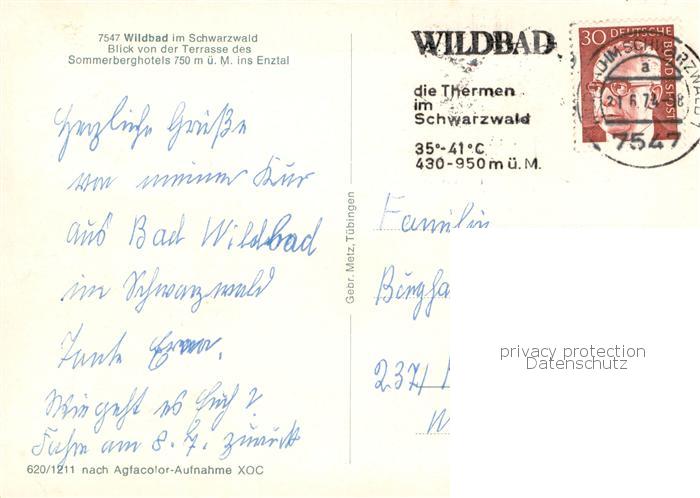 7547 Wildbad im Schwarzwald
Blick von der Terrasse des
Sommerberghotels 750 m ü. M. ins Enztal
Herzliche Grüße
von meiner Kur
aus Bad Wildbad
im Schwarzwald
Tante Erna.
Wie geht es Euch?
Fahre am 8. 7. zurück
620/1211 nach Agfacolor-Aufnahme XOC
Gebr. Metz, Tübingen
WILDBAD
die Thermen
im
Schwarzwald
35°-41°C
430-950 m ü. M.
30 DEUTSCHE BUNDESPOST
a
21.6.74
7547
Familie
2371
privacy protection
Datenschutz